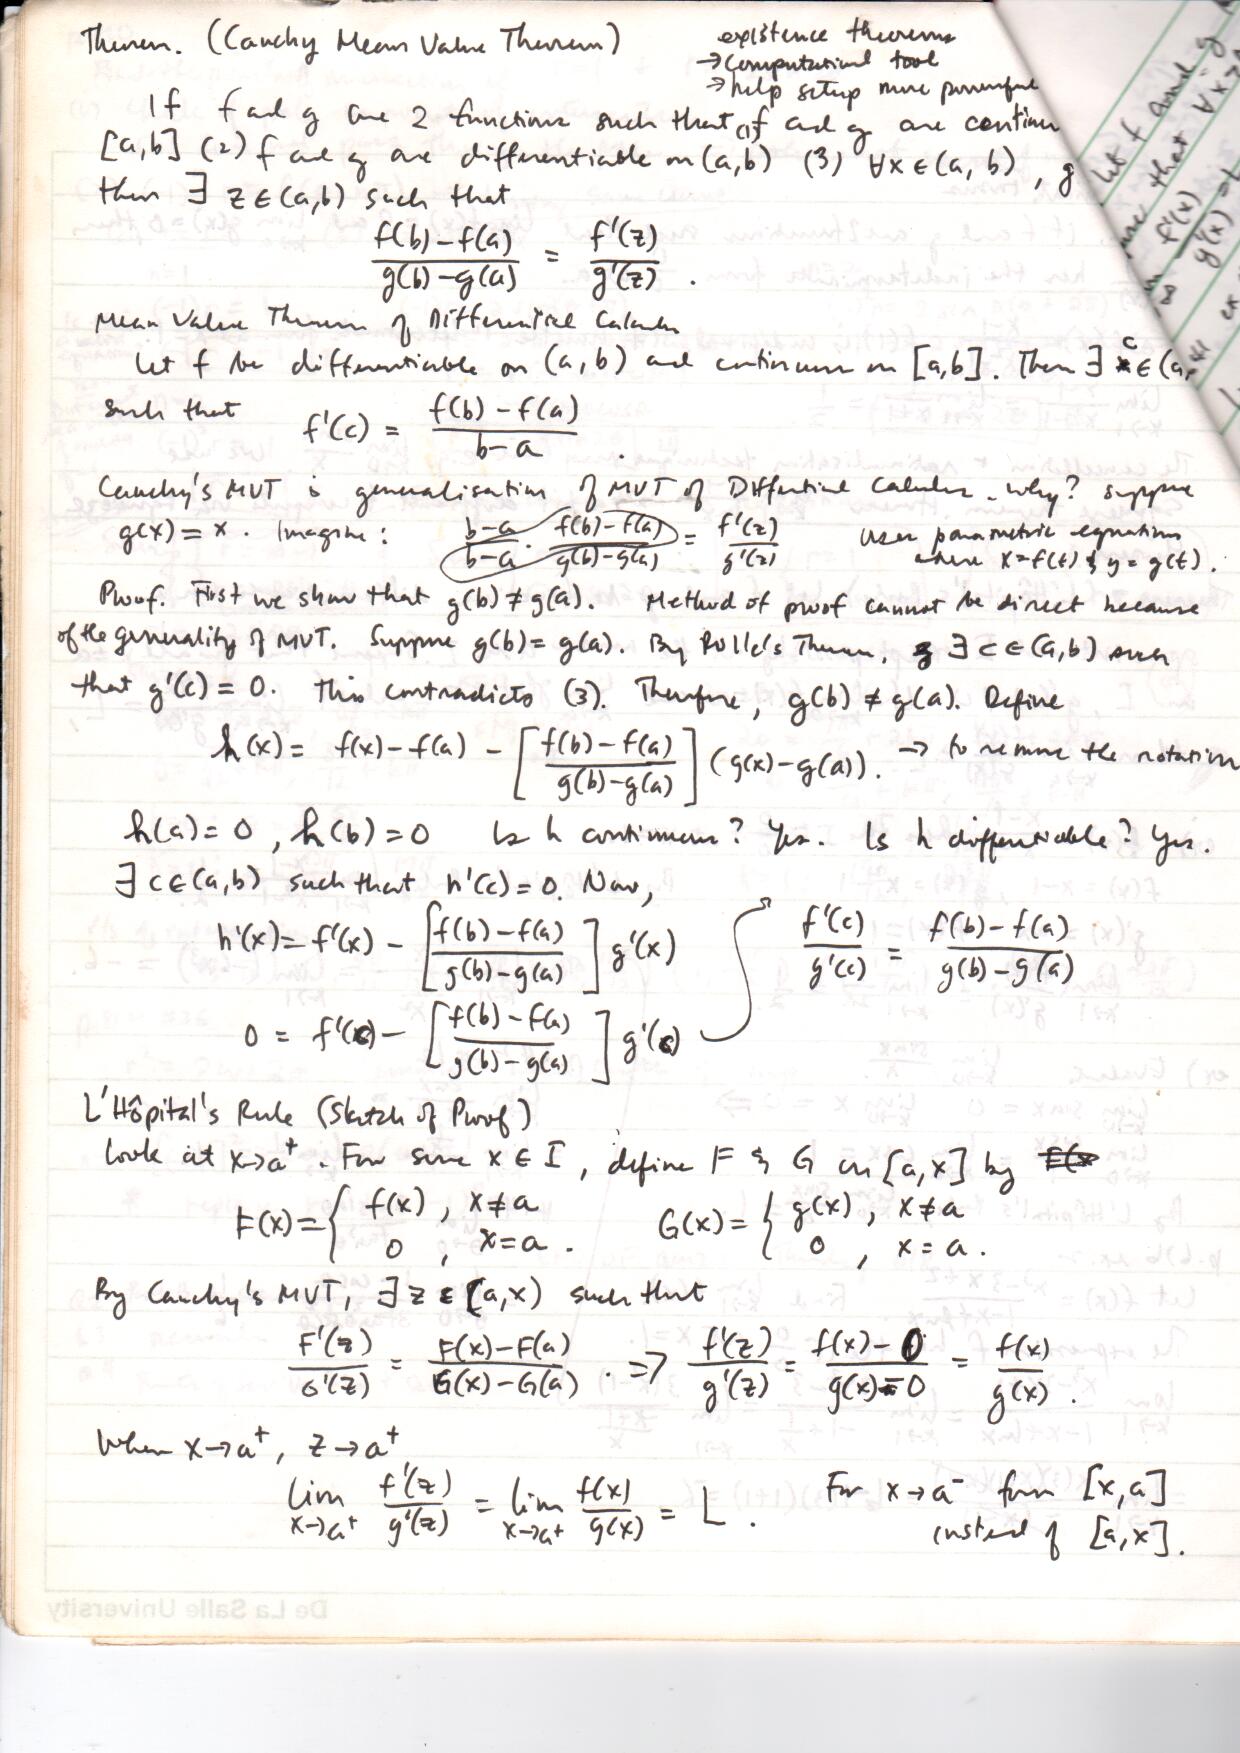 Theorem. (Cauchy Mean Value Theorem)
existence theorems
→ computational tool
→ help setup more powerful
If f and g are 2 functions such that (1) f and g are continu
[a,b] (2) f and g are differentiable on (a,b) (3) ∀x ∈ (a, b), g
then ∃ z ∈ (a,b) such that
f(b) – f(a) / g(b) – g(a) = f'(z) / g'(z) .
Mean Value Theorem of Differential Calculus
Let f be differentiable on (a, b) and continuous on [a,b]. Then ∃ c ∈ (a,
such that f'(c) = f(b) – f(a) / b – a .
Cauchy's MVT is generalisation of MVT of Diffential Calculus. Why? suppose
g(x) = x. Imagine: b–a / b–a · f(b) – f(a) / g(b) – g(a) = f'(z) / g'(z) uses parametric equations
where x = f(t) & y = g(t).
Proof. First we show that g(b) ≠ g(a). Method of proof cannot be direct because
of the generality of MVT. Suppose g(b) = g(a). By Rolle's Theorem, ∃ c ∈ (a,b) such
that g'(c) = 0. This contradicts (3). Therefore, g(b) ≠ g(a). Define
h(x) = f(x) – f(a) – [ f(b) – f(a) / g(b) – g(a) ] (g(x) – g(a)). → to remove the rotation
h(a) = 0 , h(b) = 0 Is h continuous? Yes. Is h differentiable? Yes.
∃ c ∈ (a,b) such that h'(c) = 0. Now,
h'(x) = f'(x) – [ f(b) – f(a) / g(b) – g(a) ] g'(x)
f'(c) / g'(c) = f(b) – f(a) / g(b) – g(a)
0 = f'(c) – [ f(b) – f(a) / g(b) – g(a) ] g'(c)
L'Hôpital's Rule (Sketch of Proof)
Look at x → a⁺. For some x ∈ I, define F & G on [a,x] by
F(x) = { f(x) , x ≠ a G(x) = { g(x) , x ≠ a
0 , x = a . 0 , x = a .
By Cauchy's MVT, ∃ z ∈ (a,x) such that
F'(z) / G'(z) = F(x) – F(a) / G(x) – G(a) . ⇒ f'(z) / g'(z) = f(x) – 0 / g(x) – 0 = f(x) / g(x) .
When x → a⁺, z → a⁺
lim x→a⁺ f'(z) / g'(z) = lim x→a⁺ f(x) / g(x) = L . For x → a⁻ form [x,a]
instead of [a,x].
De La Salle University
let f and g
that ∀x >
f'(x)
g'(x) = L
ex